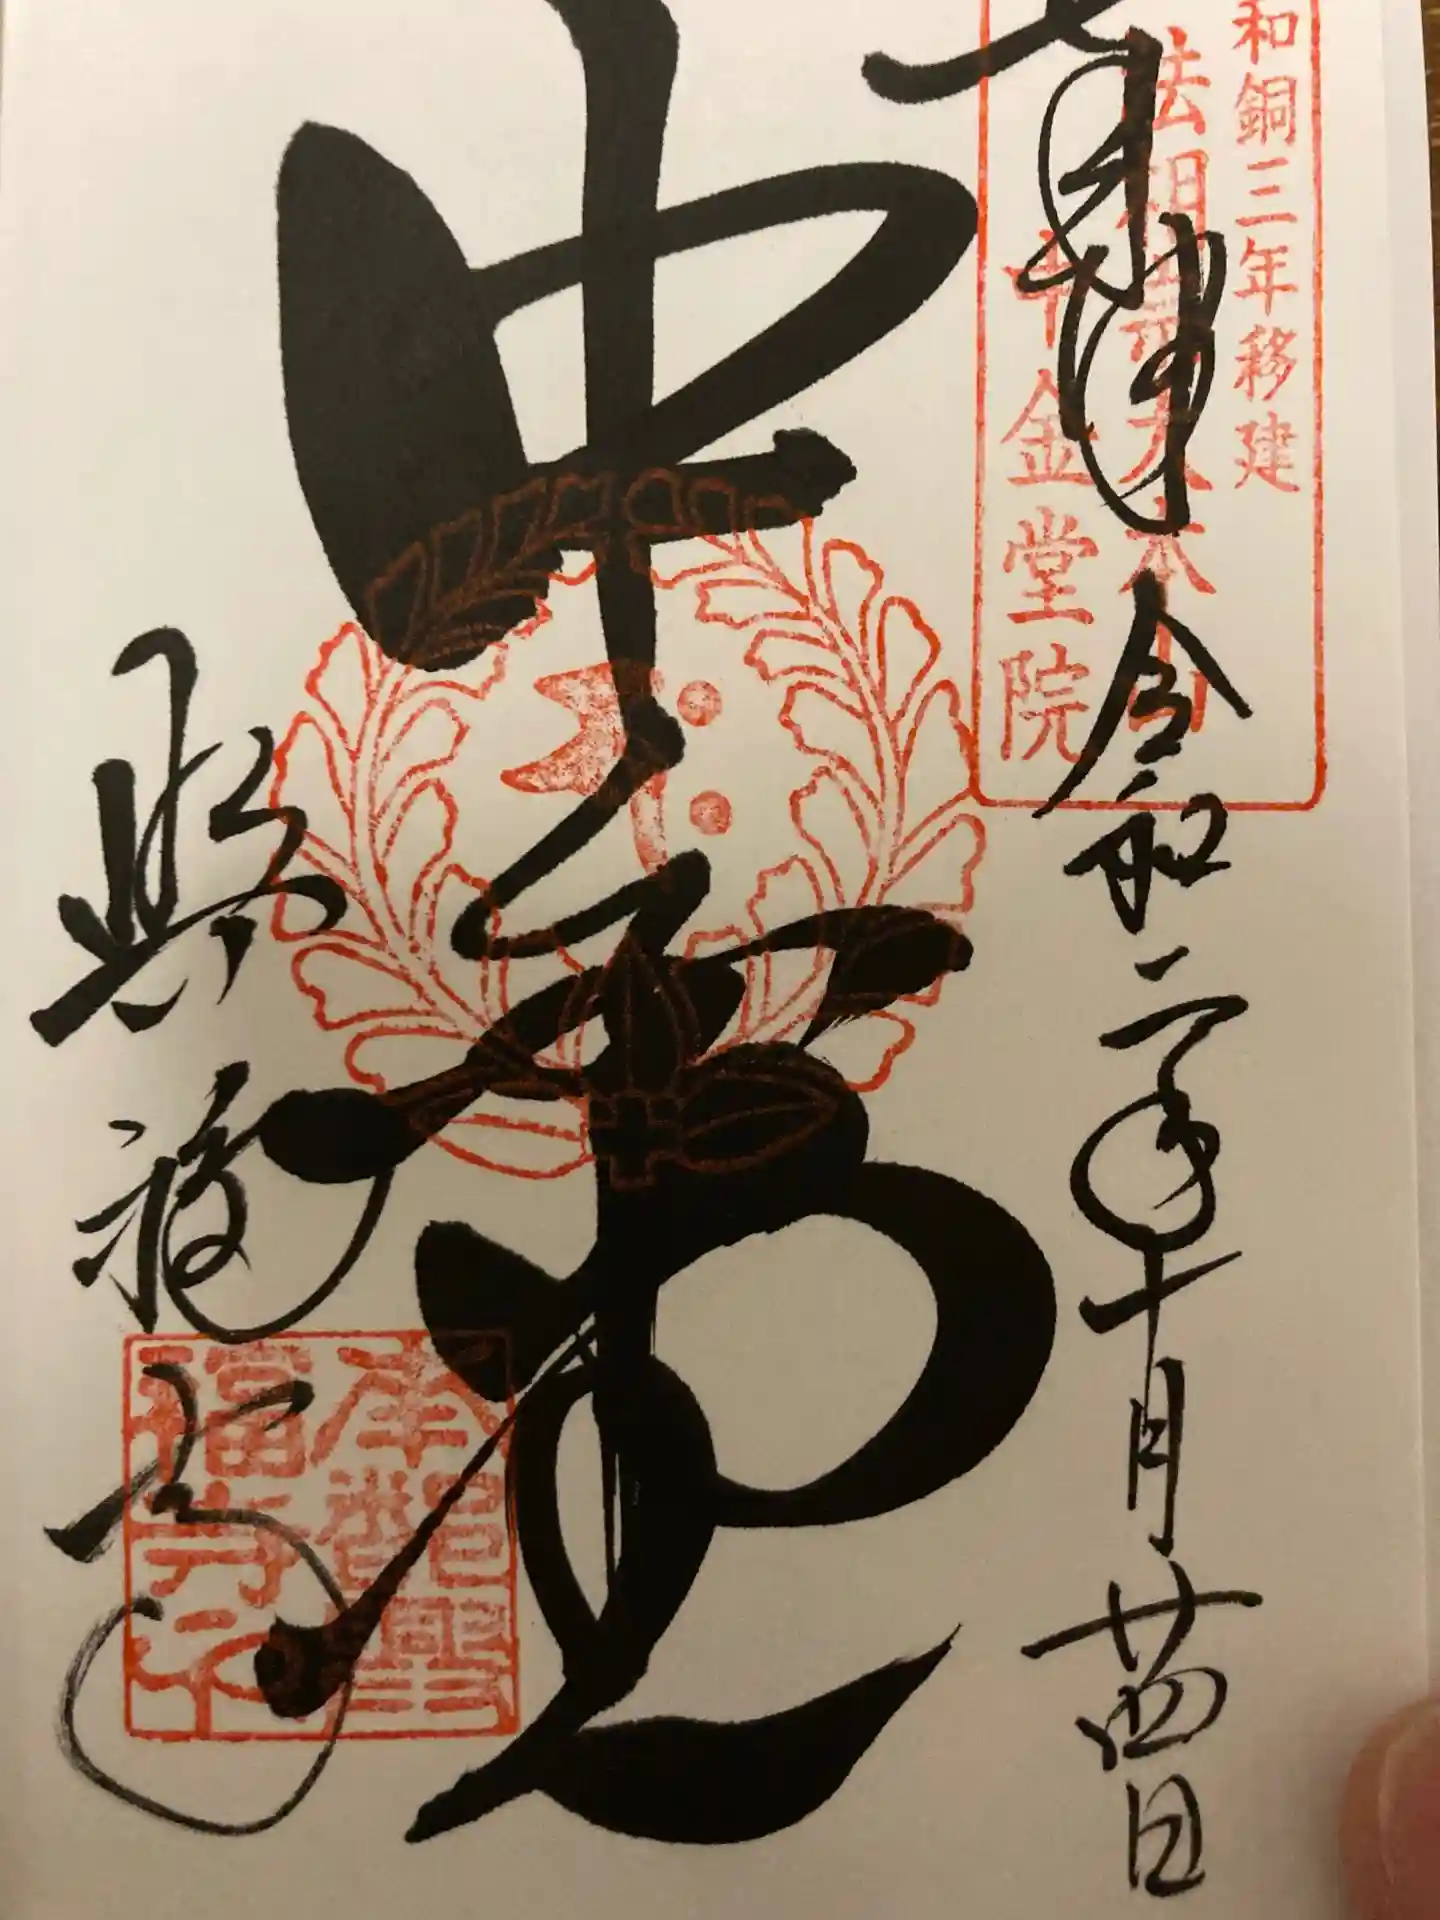 和銅三年移建
法相宗大本山
中金堂院
奉拝
令和二年十月廿四日
中金堂
興福寺